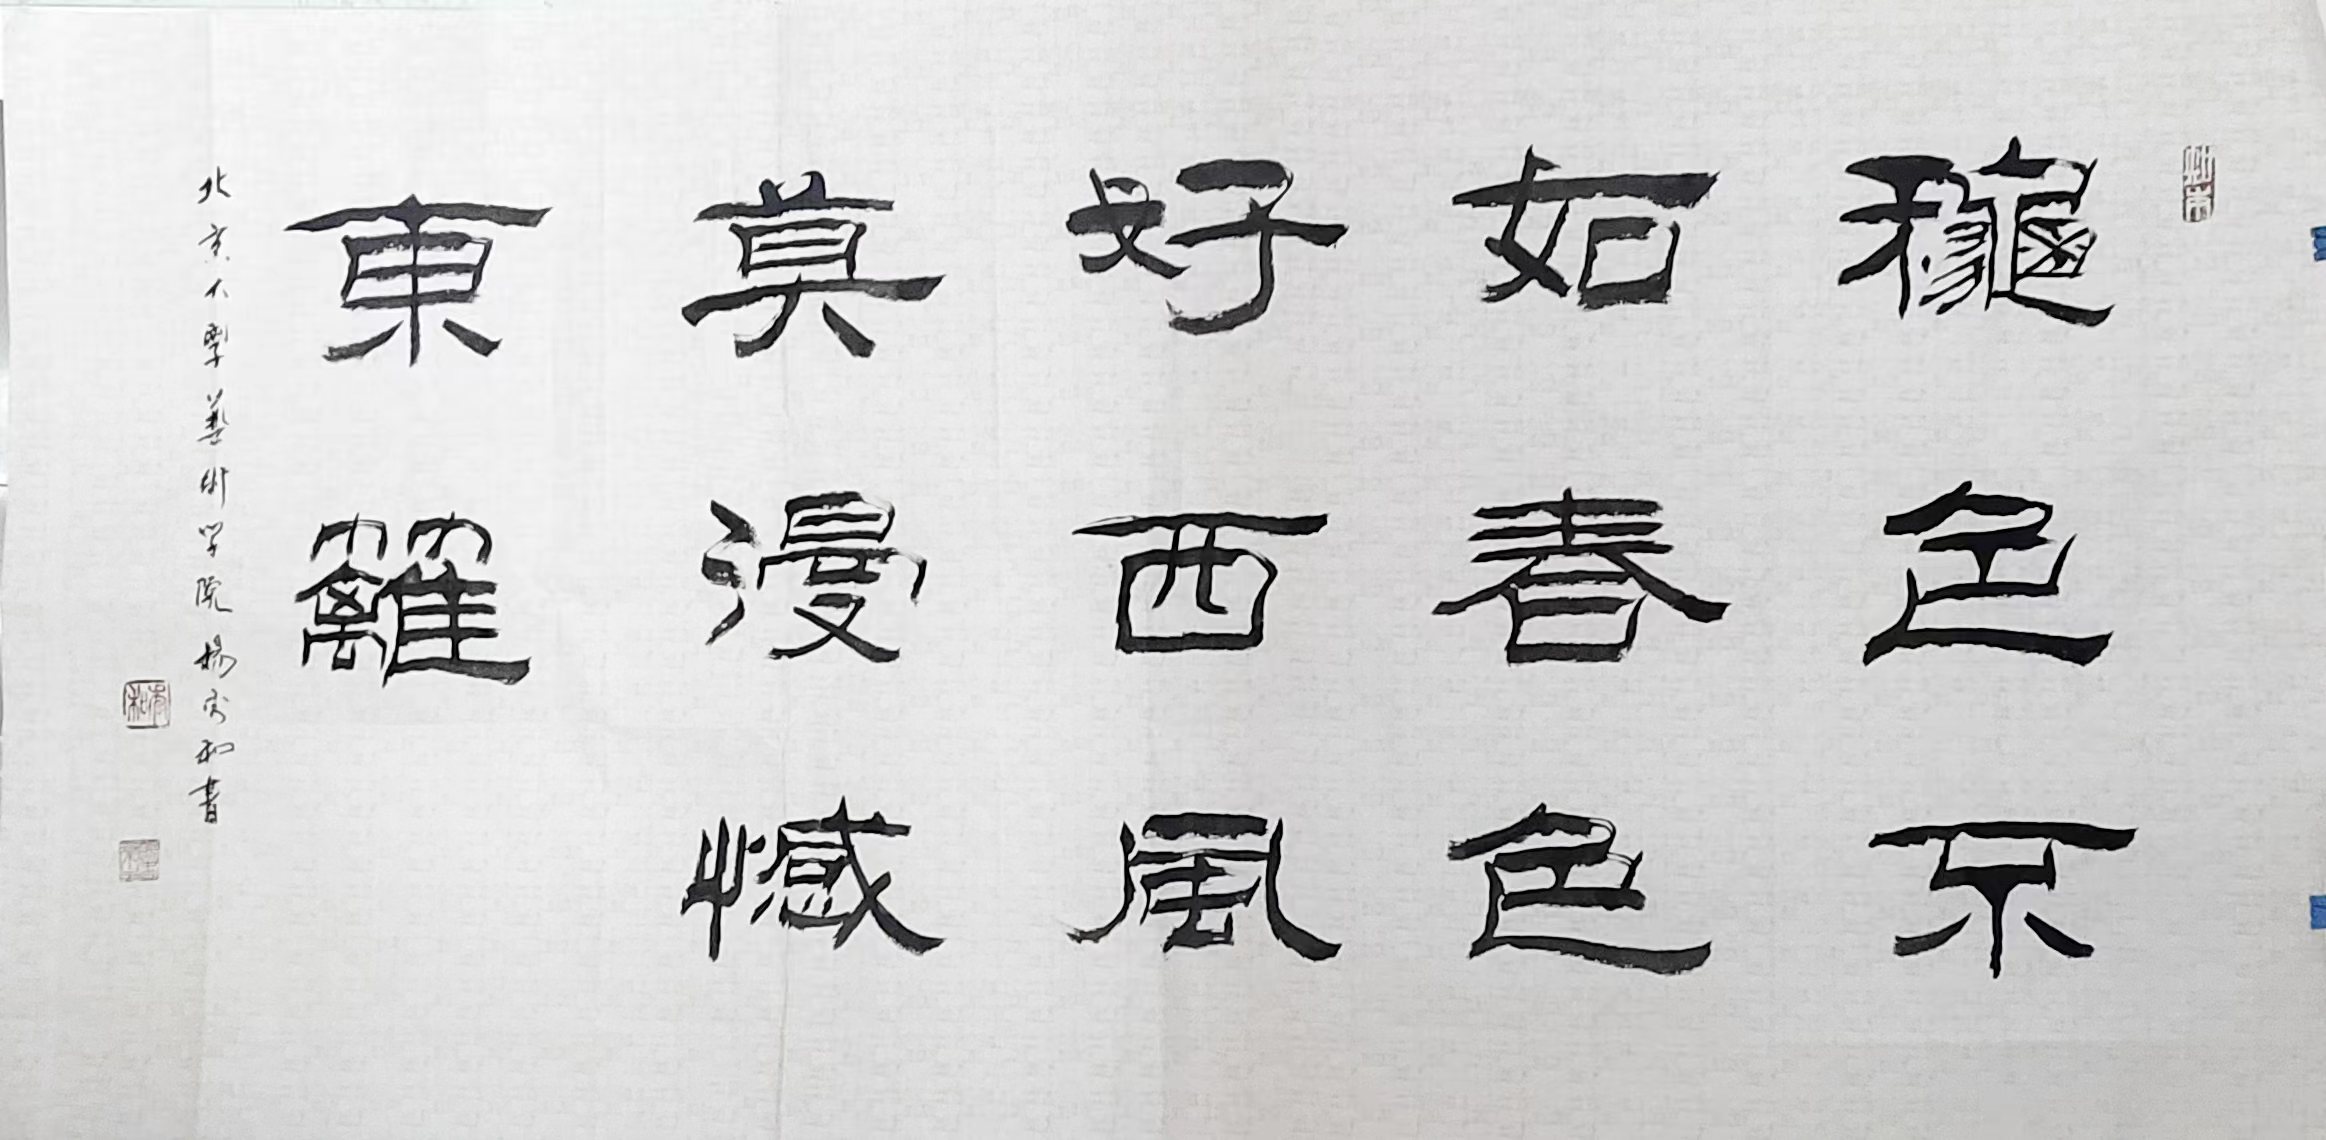 龝色不
如春色
好西風
莫漫憾
東籬
北京大學藝術学院楊宗和書